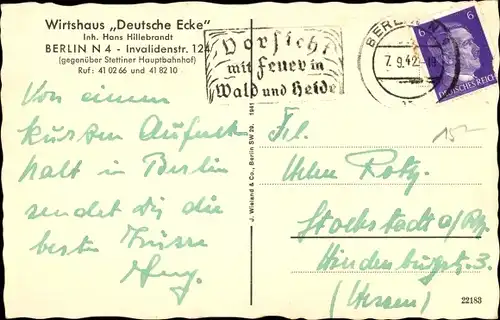 Wirtshaus „Deutsche Ecke"
Inh. Hans Hillebrandt
BERLIN N 4 - Invalidenstr. 124
(gegenüber Stettiner Hauptbahnhof)
Ruf: 41 02 66 und 41 82 10
Vorsicht
mit Feuer in
Wald und Heide
BERLIN
7.9.42
6 6
DEUTSCHES REICH
Von einem
kurzen Aufent
halt in Berlin
sendet Dir die
besten Grüsse
J. Wieland & Co., Berlin SW 29. 1941
Frl.
Stockstadt a/Rh.
Hindenburgstr. 3
(Hessen)
22183